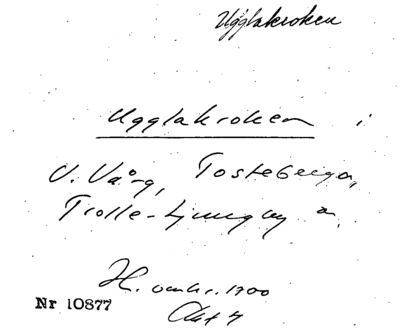 Ugglakroken
Ugglakroken i
V. Vång, Tosteberga,
Trolle-Ljungby a.
H. omkr. 1700
Nr 10877
Akt 4